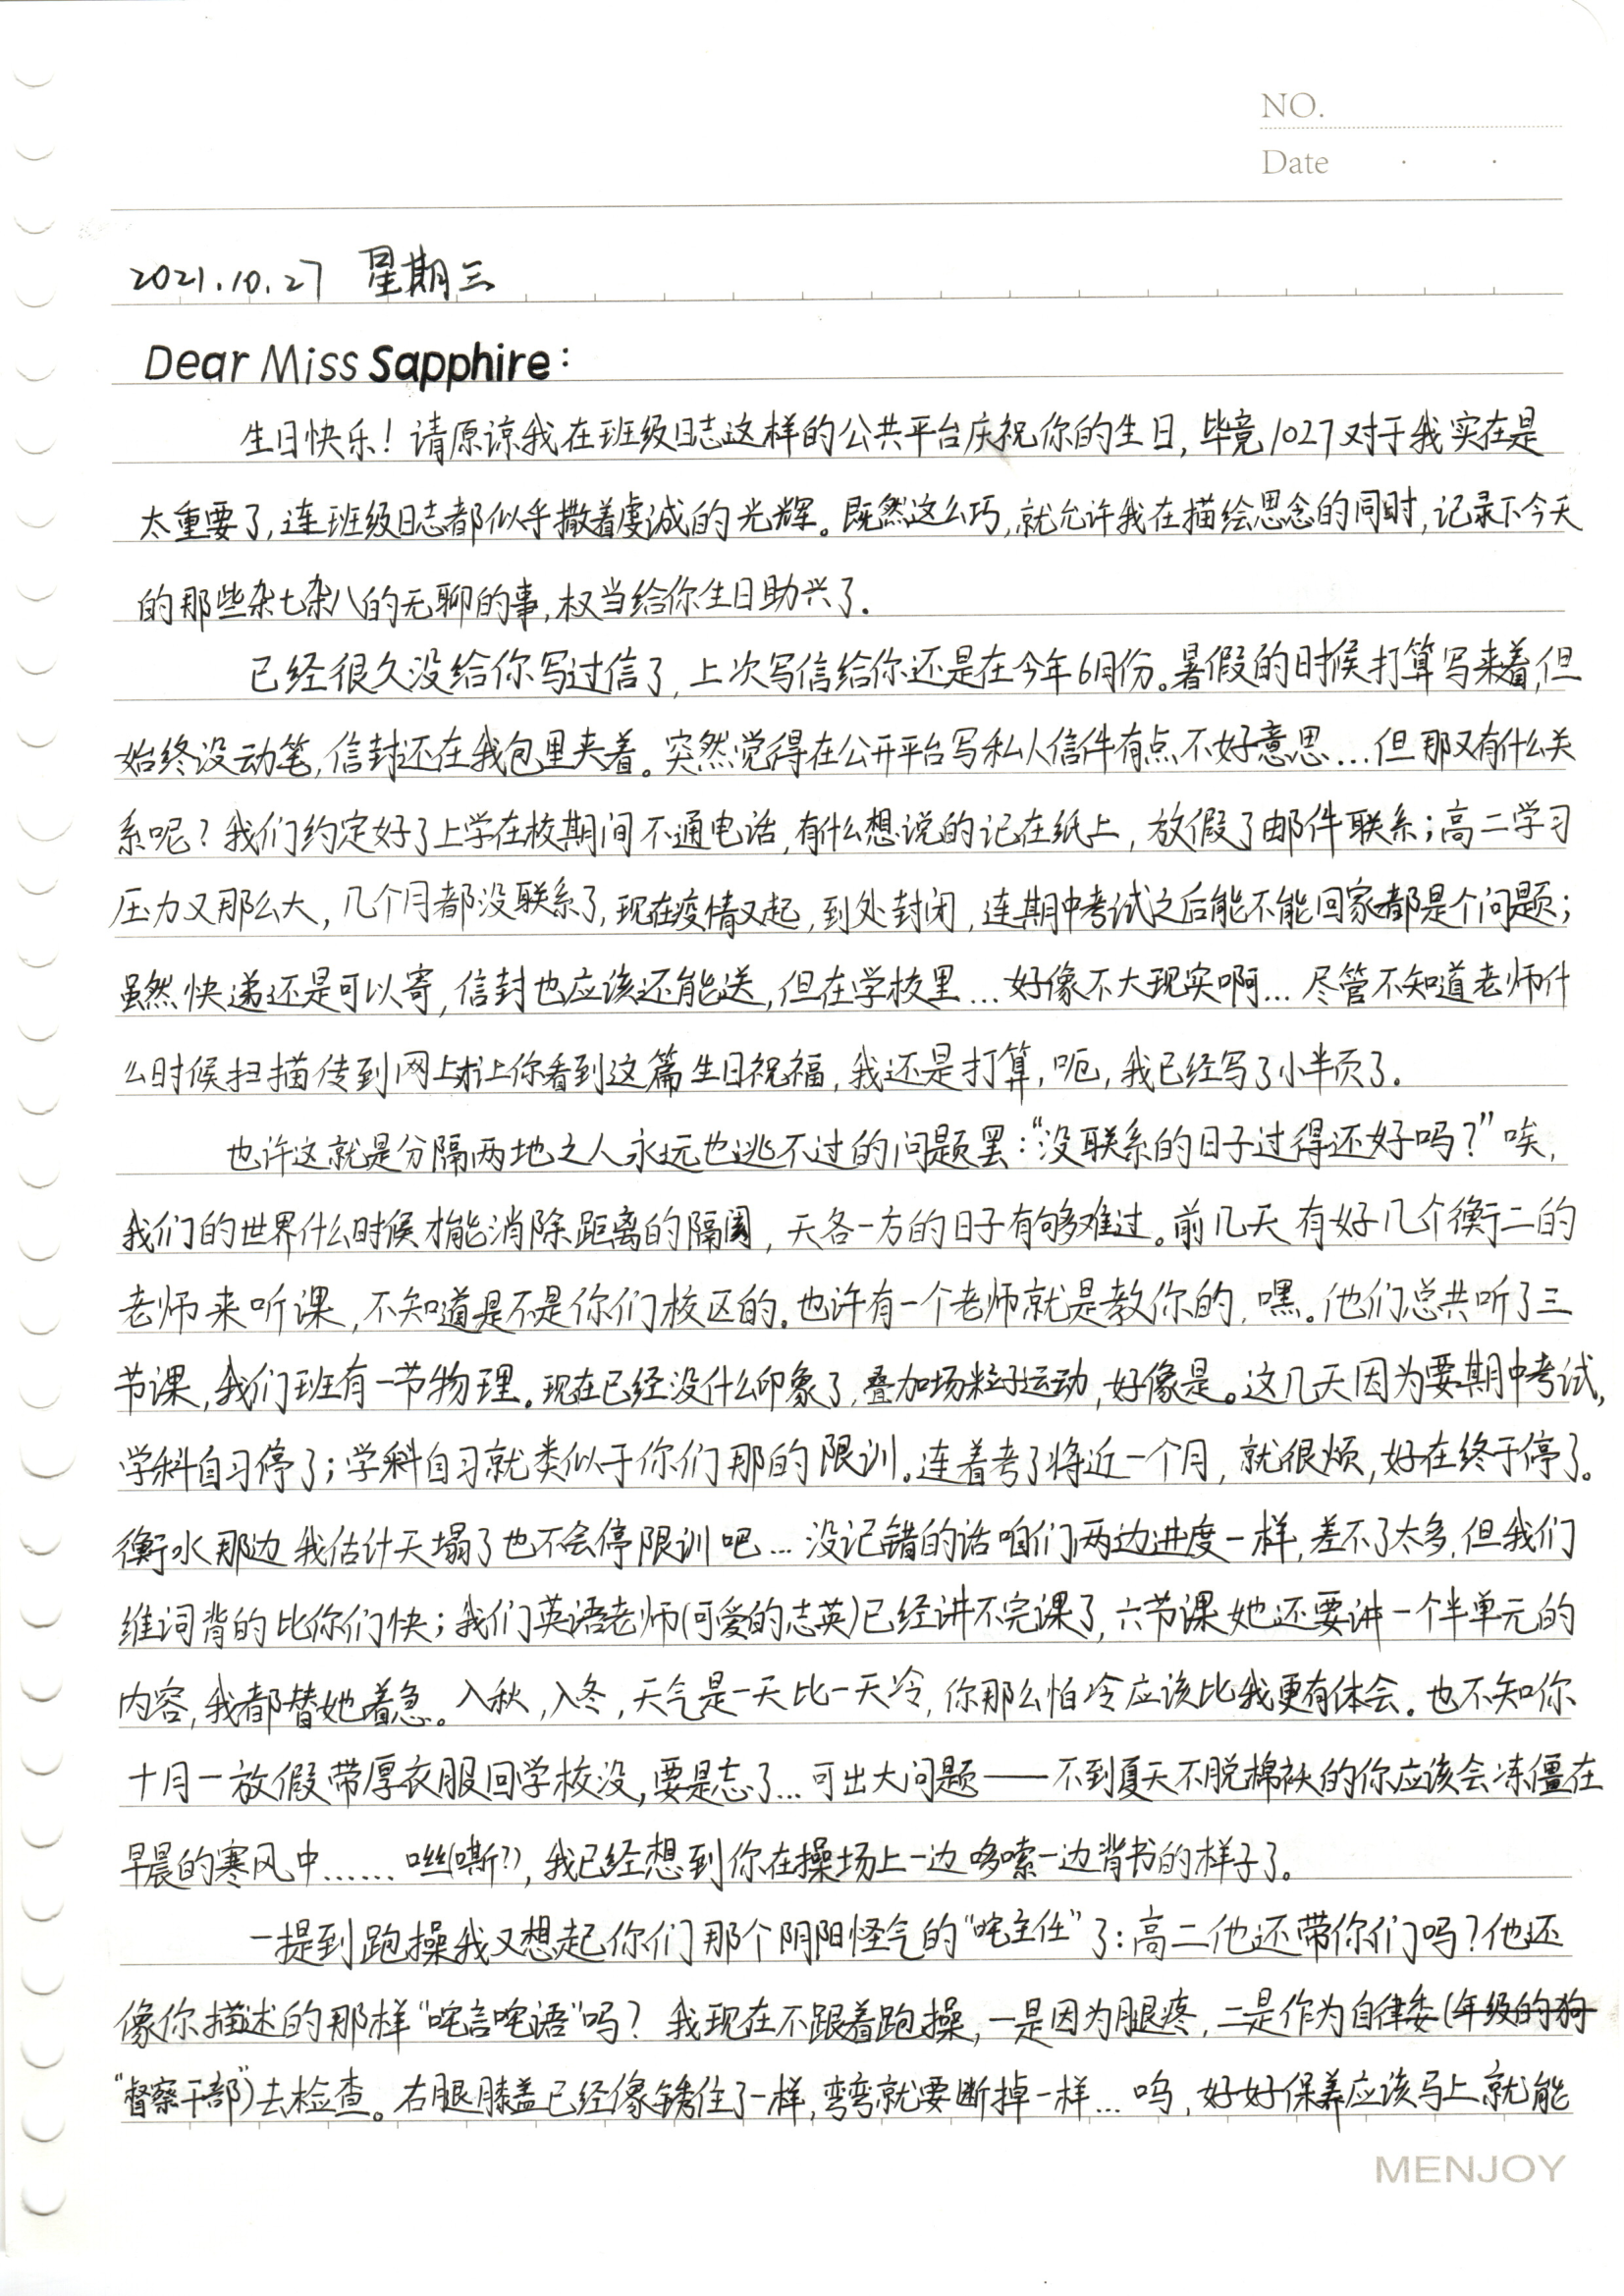 NO.
Date
2021.10.27 星期三
Dear Miss Sapphire:
生日快乐！请原谅我在班级日志这样的公共平台庆祝你的生日，毕竟1027对于我实在是
太重要了，连班级日志都似乎撒着虔诚的光辉。既然这么巧，就允许我在描绘思念的同时，记录下今天
的那些杂七杂八的无聊的事，权当给你生日助兴了。
已经很久没给你写过信了，上次写信给你还是在今年6月份。暑假的时候打算写来着，但
始终没动笔，信封还在我包里夹着。突然觉得在公开平台写私人信件有点不好意思…但那又有什么关
系呢？我们约定好了上学在校期间不通电话，有什么想说的记在纸上，放假了邮件联系；高二学习
压力又那么大，几个月都没联系了，现在疫情又起，到处封闭，连期中考试之后能不能回家都是个问题；
虽然快递还是可以寄，信封也应该还能送，但在学校里…好像不大现实啊…尽管不知道老师什
么时候扫描传到网上才让你看到这篇生日祝福，我还是打算，呃，我已经写了小半页了。
也许这就是分隔两地之人永远也逃不过的问题罢：“没联系的日子过得还好吗？”唉，
我们的世界什么时候才能消除距离的隔阂，天各一方的日子有够难过。前几天有好几个衡二的
老师来听课，不知道是不是你们校区的。也许有一个老师就是教你的，嘿。他们总共听了三
节课，我们班有一节物理。现在已经没什么印象了，叠加场粒子运动，好像是。这几天因为要期中考试，
学科自习停了；学科自习就类似于你们那的限训。连着考了将近一个月，就很烦，好在终于停了。
衡水那边我估计天塌了也不会停限训吧…没记错的话咱们两边进度一样，差不了太多，但我们
维词背的比你们快；我们英语老师(可爱的志英)已经讲不完课了，六节课她还要讲一个半单元的
内容，我都替她着急。入秋，入冬，天气是一天比一天冷，你那么怕冷应该比我更有体会。也不知你
十月一放假带厚衣服回学校没，要是忘了…可出大问题——不到夏天不脱棉袄的你应该会冻僵在
早晨的寒风中……咝(嘶？)，我已经想到你在操场上一边哆嗦一边背书的样子了。
一提到跑操我又想起你们那个阴阳怪气的“咤主任”了：高二他还带你们吗？他还
像你描述的那样“咤言咤语”吗？我现在不跟着跑操，一是因为腿疼，二是作为自律委(年级的狗
“督察干部”)去检查。右腿膝盖已经像锈住了一样，弯弯就要断掉一样…呜，好好保养应该马上就能
MENJOY